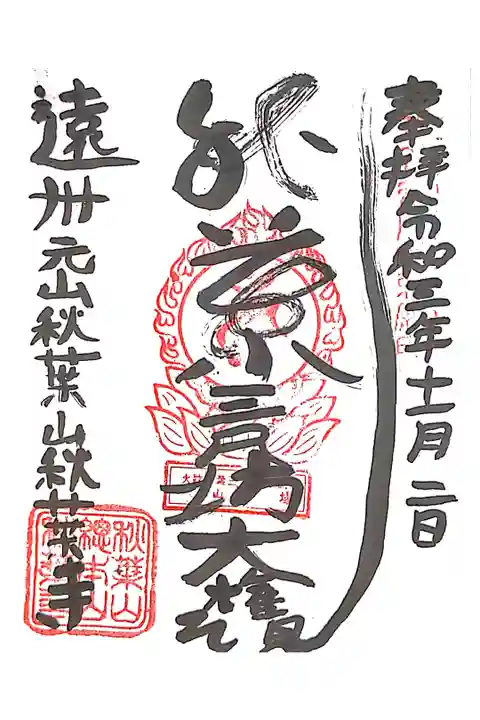 奉拝令和三年十一月二日
秋葉三尺坊大権現
遠州元山秋葉山秋葉寺
秋葉山